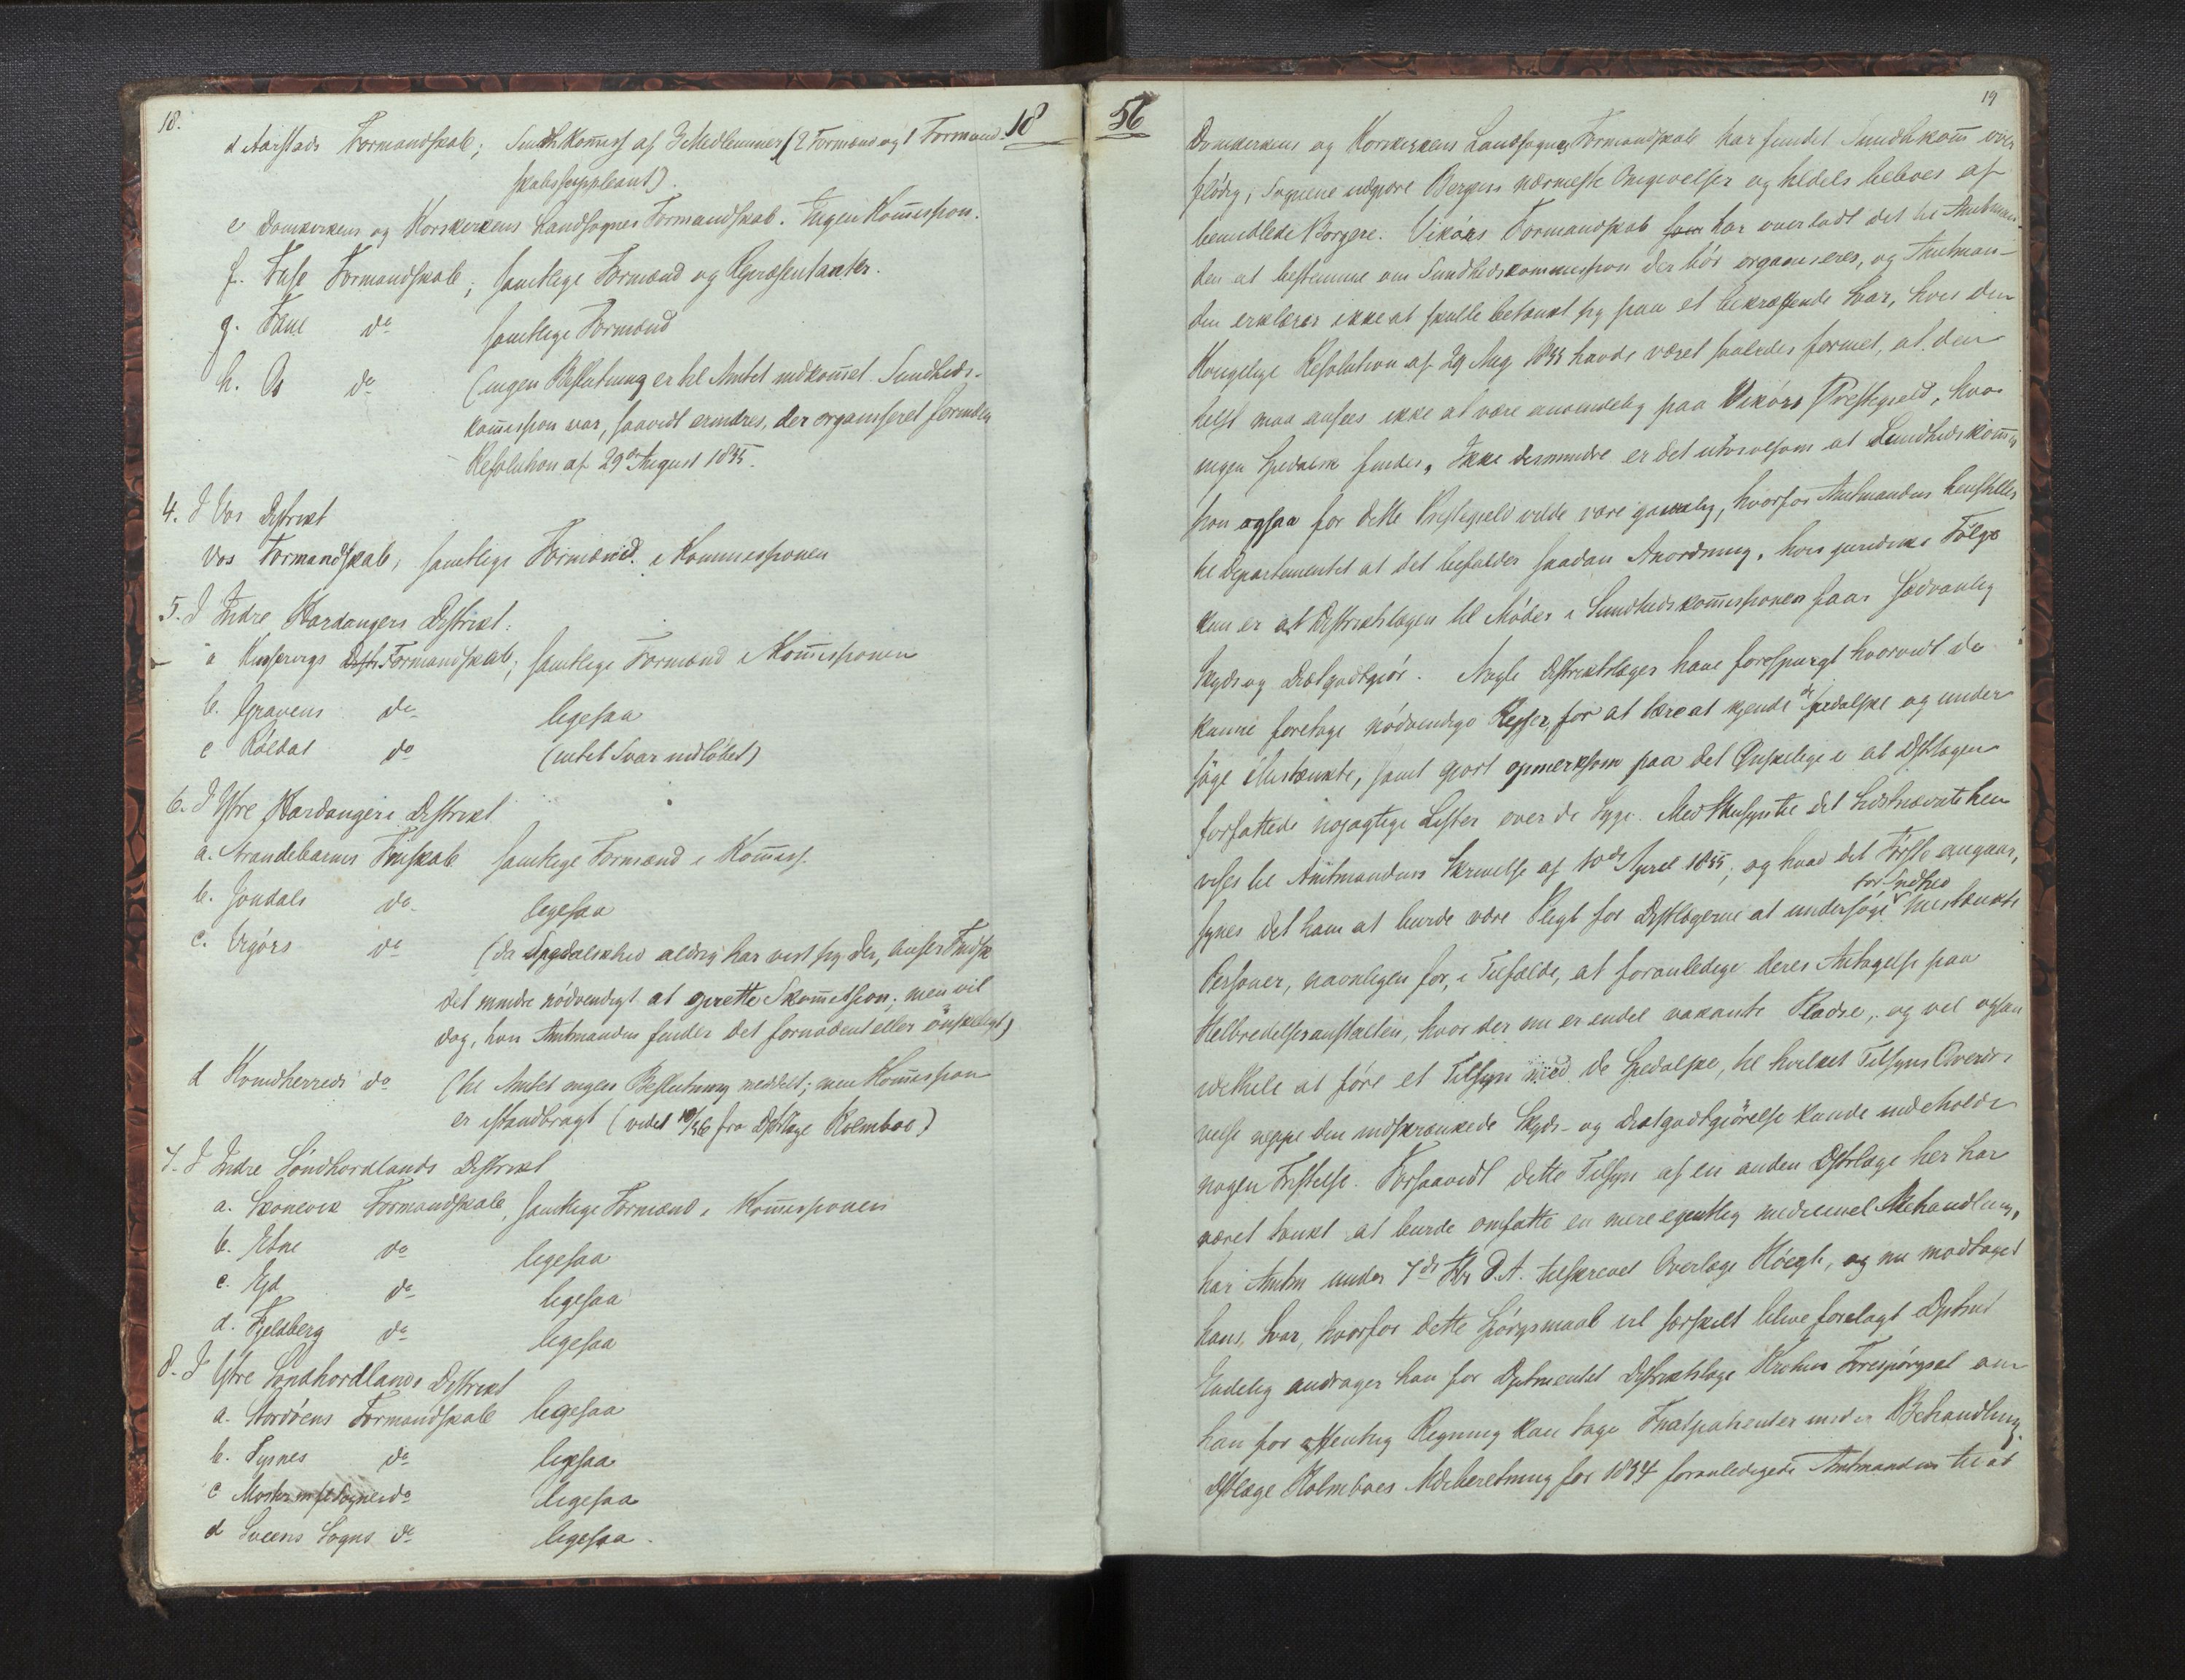 18.
18
d Aarstads Formandskab; Sundhkom̄iss af 3 Medlemmer (2 Formænd og 1 Formand
skabssuppleant).
e Domkirkens og Korskirkens Landsognes Formandskab. Ingen Kom̄ission.
f. Fuse Formandskab; samtlige Formænd og Repræsentanter.
g. Fane do samtlige Formænd
h. Os do (ingen Beslutning er til Amtet indkom̄et. Sundheds-
kom̄ission var, saavidt erindres, der organiseret forinden
Resolution af 29de August 1855.
4. I Vos Distrikt
Vos Formandskab, samtlige Formænd i Kommissionen
5. I Indre Hardangers Distrikt.
a Kinservigs Formandskab; samtlige Formænd i Kom̄issionen
b. Gravens do ligesaa
c Röldal do (intet Svar indlöbet)
6. I Ytre Hardangers Distrikt
a. Strandebarms Fmskab samtlige Formænd i Kom̄iss.
b. Jondals do ligesaa
c. Vigörs do (da Spedalskhed aldrig har vist sig der, anser Fmdsk
det mindre nödvendigt at oprette Skom̄ission; men vil
dog, hvis Amtmanden finder det fornödent eller önskeligt)
d Kvindherreds do (til Amtet ingen Beslutning meddelt; men Kom̄ission
er istandbragt (vidst 10/56 fra Dstlæge Holmboe)
7. I Indre Söndhordlands Distrikt
a. Skonevik Formandskab, samtlige Formænd i Kom̄issionen
b. Etne do ligesaa
c. Eid do ligesaa
d. Fjeldberg do ligesaa
8. I Ytre Söndhordlands Distrikt
a. Stordöens Formandskab ligesaa
b. Tysnes do ligesaa
c Mosters Sognes do ligesaa
d Sveens Sogns do ligesaa.
56
19
Domkirkens og Korskirkens Landsognes Formandskab har fundet Sundhkom̄ over
flödig, Sognene udgjøre Bergens nærmeste Omgivelser og tildels beboes af
bemidlede Borgere. Vikörs Formandskab som har overladt det til Amtman
den at bestemme om Sundhedskommission der bör organiseres, og Amtman-
den erklærer ikke at skulle betænkt sig paa et bekræftende Svar, hvis den
Kongelige Resolution af 29 Aug 1855 havde været saaledes formet, at den
helst maa ansees ikke at være anvendelig paa Vikörs Præstegjeld, hvor
ingen Spedalsk findes. Ikke desmindre er det utvivlsomt at Sundhedskom̄is
sion ogsaa for dette Præstegjeld vilde være gavnlig, hvorfor Amtmanden henstiller
til Departementet at det befaldes saadan Anordning, hvis juridiske Fölge
kun er at Distriktslægen til Möder i Sundhedskom̄issionen faar sædvanlig
Skyds og Diætgodtgjör. Nogle Distriktslæger have forespurgt hvorvidt de
kunne foretage nödvendige Rejser, for at lære at kjende de Spedalske og under
söge Mistænkte, samt gjort opmerksom paa det Ønskelige i at Dstlægen
forfattede nöjagtige Lister over de Syge. Med Hensyn til det Sidstnævnte hen
vises til Amtmandens Skrivelse af 10de April 1855; og hvad det Förste angaar,
synes det ham at burde være Pligt for Dstlægerne at undersöge for Sydhed mistænkte
Personer, navnligen for, i Tilfælde, at foranledige deres Antagelse paa
Helbredelsesanstalten, hvor der nu er endel vakante Pladse, og vel ogsaa
at före et Tilsyn med de Spedalske, til hvilket Tilsyns Overdr
velse neppe den indskrænkede Skyds- og Diætgodtgjörelse kunde indeholde
nogen Fristelse. Forsaavidt dette Tilsyn af en anden Dstlæge her har
været tænkt at burde omfatte en mere egentlig medicinsk Behandling,
har Amtm under 7de D.A. tilskrevet Overlæge Höegh, og nu modtaget
hans Svar, hvorfor dette Spörgsmaal vil særskilt blive forelagt Dptmt
Endelig andrager han for Dptmentet Distriktslæge Krohns Forespörgsel om
han for offentlig Regning kan tage Fnatpatienter under Behandling.
Dstlæge Holmboes Mdsberetning for 1854 foranledigede Amtmanden til at